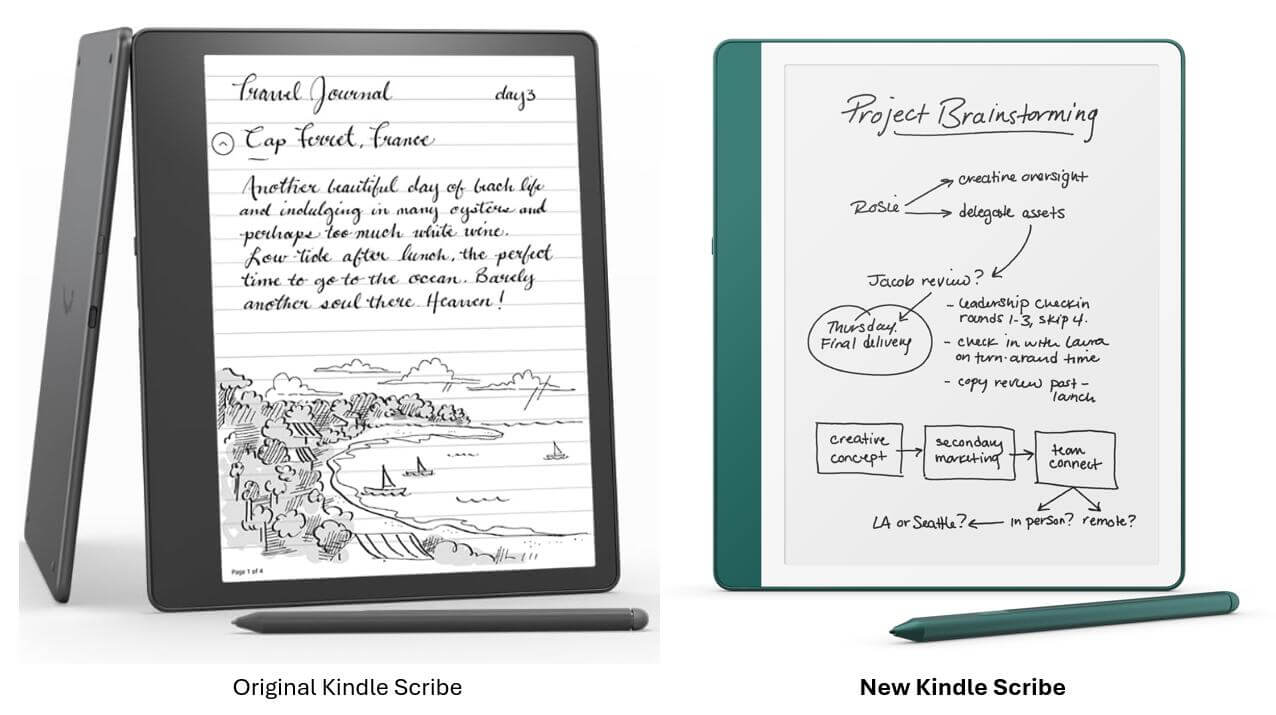 Travel Journal day 3
Cap Ferret, France
Another beautiful day of beach life
and indulging in many oysters and
perhaps too much white wine.
Low tide after lunch, the perfect
time to go to the ocean. Barely
another soul there. Heaven!
Page 1 of 4
Original Kindle Scribe
Project Brainstorming
Rosie
creative oversight
delegate assets
Jacob review?
Thursday.
Final delivery
- leadership checkin
rounds 1-3, skip 4.
- check in with Laura
on turn-around time
- copy review post-
launch
creative
concept
secondary
marketing
team
connect
LA or Seattle? in person? remote?
New Kindle Scribe